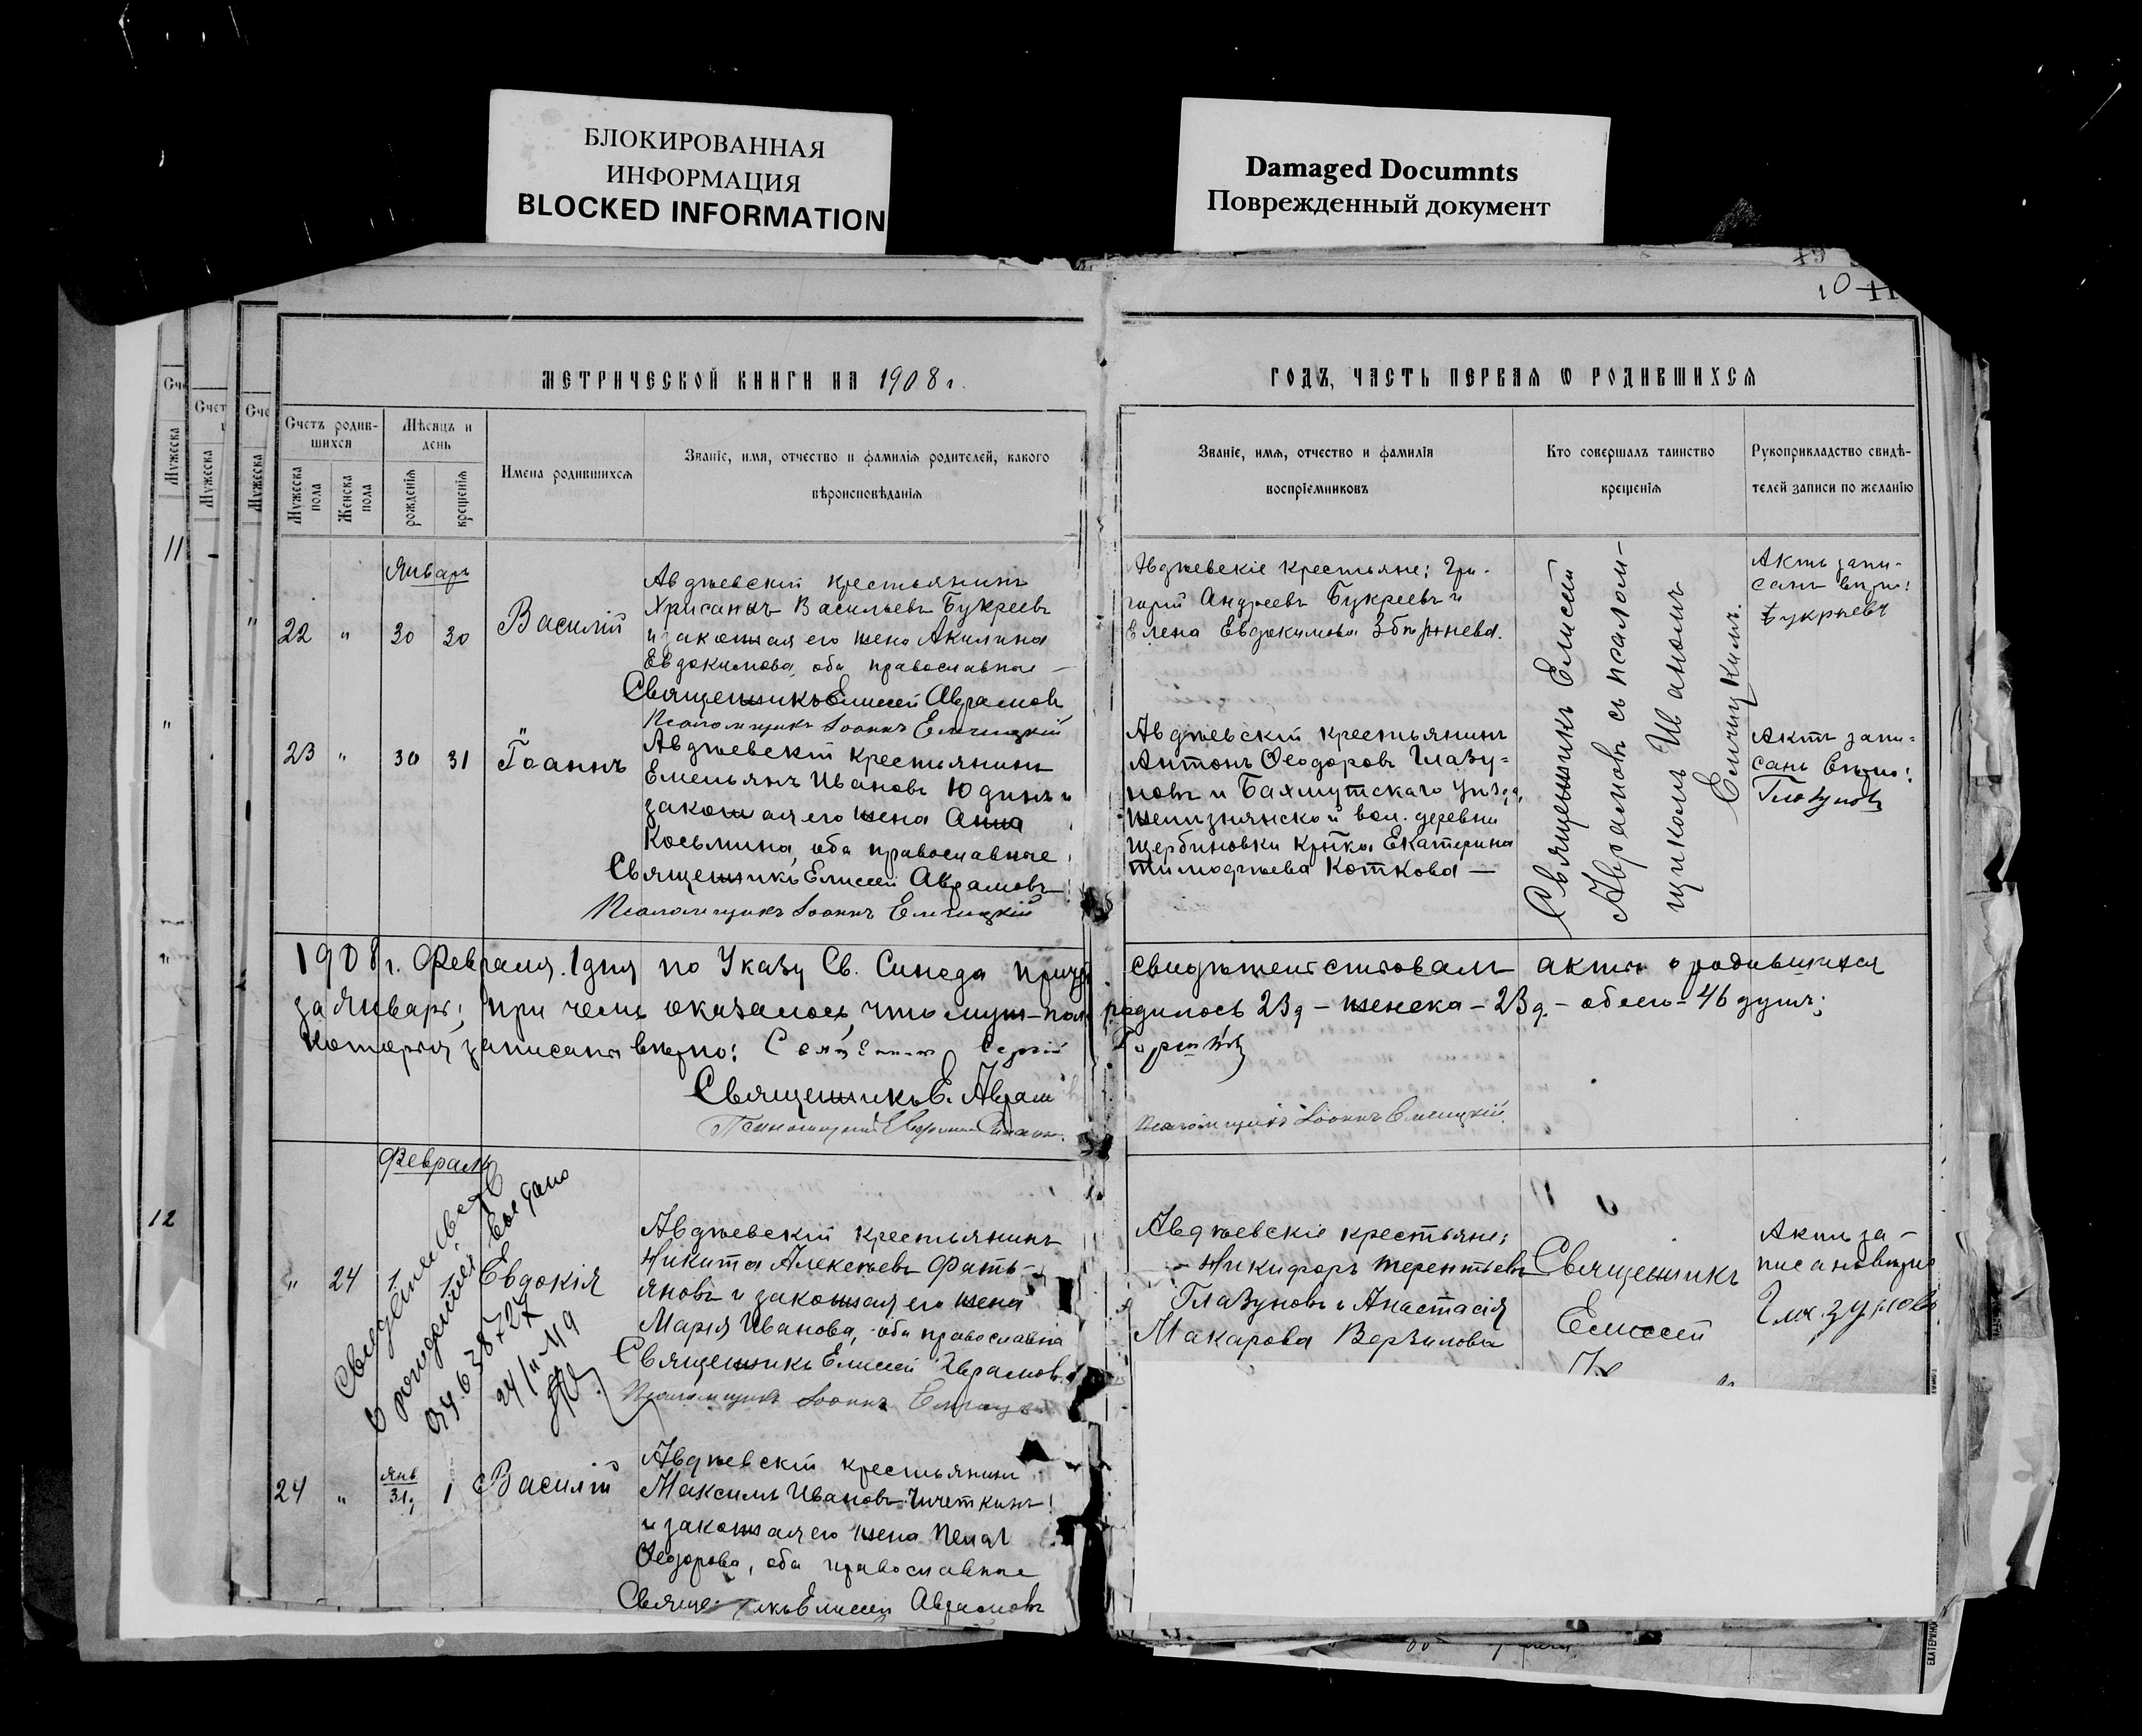 БЛОКИРОВАННАЯ
ИНФОРМАЦИЯ
BLOCKED INFORMATION
Damaged Documnts
Поврежденный документ
10 11
МЕТРИЧЕСКОЙ КНИГИ НА 1908 г.
ГОДЪ, ЧАСТЬ ПЕРВАЯ Ѡ РОДИВШИХСЯ
Счетъ родив-
шихся
Мужеска пола
Женска пола
Мѣсяцъ и
день
рожденія
крещенія
Имена родившихся
Званіе, имя, отчество и фамилія родителей, какого
вѣроисповѣданія
Званіе, имя, отчество и фамилія
воспріемниковъ
Кто совершалъ таинство
крещенія
Рукоприкладство свидѣ-
телей записи по желанію
Январь
22 " 30 30 Василій
Авдѣевскій крестьянинъ
Хрисанхъ Васильевъ Букреевъ
и законная его жена Акилина
Евдокимова, оба православные
Священникъ Елисей Аврамовъ
Псаломщикъ Іоаннъ Елчицкій
Авдѣевскіе крестьяне: Гри-
горій Андреевъ Букреевъ и
Елена Евдокимова
Священникъ Елисей
Аврамовъ съ псалом-
щикомъ Иваномъ
Елчицкимъ.
Актъ запи-
санъ вѣрно:
Букрѣевъ
23 " 30 31 Іоаннъ
Авдѣевскій крестьянинъ
Емельянъ Ивановъ Юдинъ и
законная его жена Анна
Косьмина, оба православные
Священникъ Елисей Аврамовъ
Псаломщикъ Іоаннъ Елчицкій
Авдѣевскій крестьянинъ
Антонъ Ѳеодоровъ Глазу-
новъ и Бахмутскаго уѣзда,
Желѣзнянской вол. деревни
Щербиновки Екатерина
Тимоѳѣева Коткова —
Актъ запи-
санъ вѣрно:
Глазуновъ
1908 г. Февраля 1 дня по Указу Св. Синода причтъ свидѣтельствовалъ акты о родившихся
за Январь; при чемъ оказалось, что муж- пола родилось 23 д — женска — 23 д. — обоего — 46 душъ;
которыя записаны вѣрно: Священникъ Сергій
Священникъ Е. Аврам
Псаломщикъ Іоаннъ Елчицкій.
Февраль
" 24 1 1 Евдокія
Свидѣтельство
о рожденіи выдано
Авдѣевскій крестьянинъ
Никита Алексѣевъ Фать-
яновъ и законная его жена
Марія Иванова, оба православны
Священникъ Елисей Аврамовъ
Псаломщикъ Іоаннъ
Авдѣевскіе крестьяне:
Никифоръ Терентьевъ
Глазуновъ и Анастасія
Макарова Верзилова
Священникъ
Елисей
Актъ за-
писанъ вѣрно
Глазуновъ
24 " Янв 31 1 Василій
Авдѣевскій крестьянинъ
Максимъ Ивановъ
и законная его жена
Ѳедорова, оба православные
Елисей Аврамовъ
12